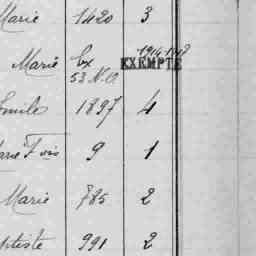 Marie 1420 3
Marie bx 1914-1918
53 N.O EXEMPTÉ
Emile 1897 4
Fois 9 1
Marie 785 2
ptiste 991 2